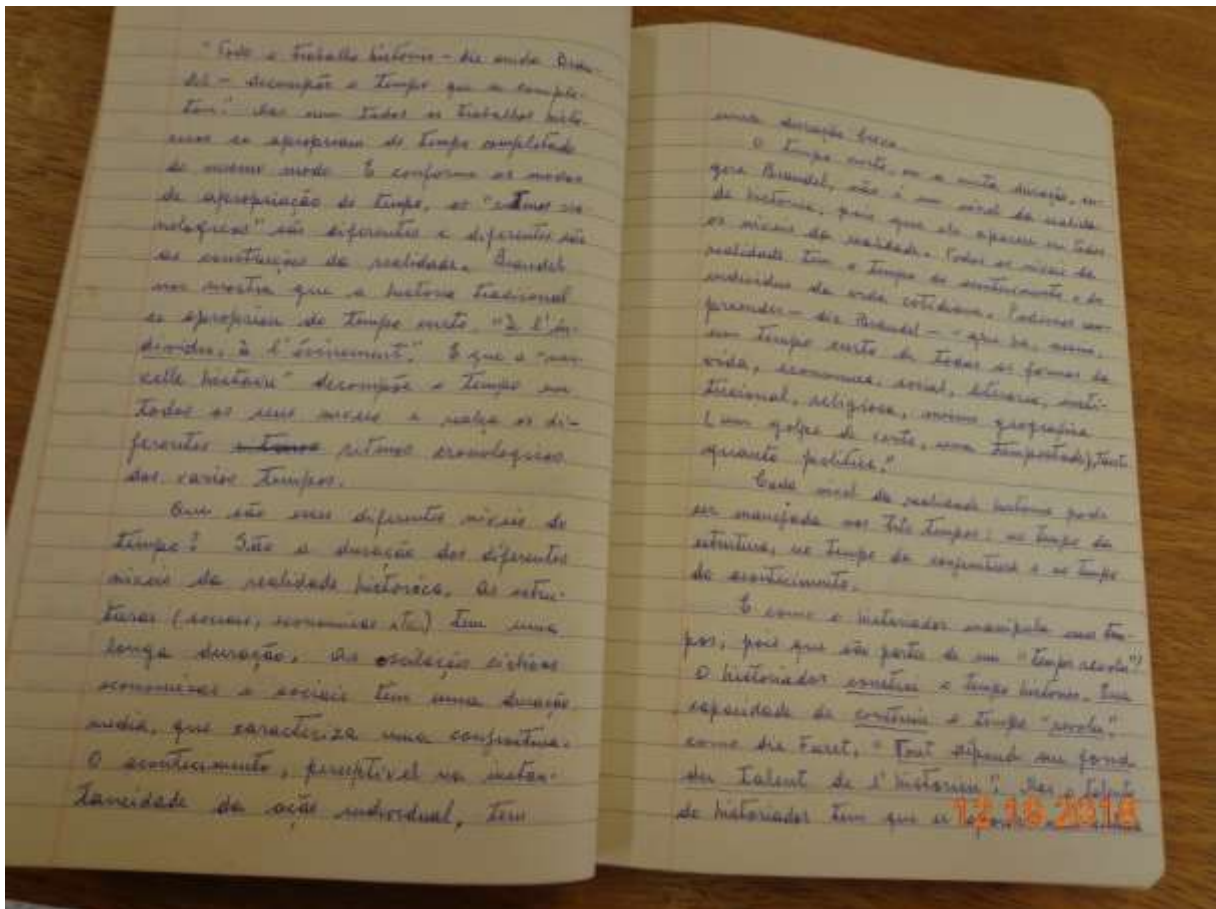 "Todo o trabalho histórico – diz ainda Brau-
del – decompõe o tempo que se comple-
tou." Mas nem todos os trabalhos histó-
ricos se apropriam do tempo completado
do mesmo modo. E conforme os modos
de apropriação do tempo, os "ritmos cro
nologicos" são diferentes e diferentes são
as construções da realidade. Braudel
nos mostra que a historia tradicional
se apropriou do tempo curto, "à l'in-
dividu, à l'événement." E que a "nou-
velle histoire" decompõe o tempo em
todos os seus niveis e realça os di-
ferentes ritmos cronologicos
dos varios tempos.
Que são esses diferentes niveis do
tempo? São a duração dos diferentes
niveis da realidade historica. As estru-
turas (sociais, economicas etc) tem uma
longa duração. As oscilações ciclicas
economicas e sociais tem uma duração
media, que caracteriza uma conjuntura.
O acontecimento, perceptivel na instan-
taneidade da ação individual, tem
uma duração breve.
O tempo curto, ou a curta duração,
gere Braudel, não é um nivel da realida
de historica, pois que ele aparece em todos
os niveis da realidade. Todos os niveis da
realidade tem o tempo do acontecimento e do
individuo da vida cotidiana. Podemos com-
preender – diz Braudel – "que ha, assim,
um tempo curto de todas as formas da
vida, economica, social, literaria, insti-
tucional, religiosa, mesmo geografica
(um golpe de vento, uma tempestade), tanto
quanto politica."
Cada nivel da realidade historica pode
ser manejada nos três tempos: no tempo da
estrutura, no tempo da conjuntura e no tempo
do acontecimento.
E como o historiador manipula esses tem-
pos, pois que são partes de um "tempo revolu"?
O historiador constroi o tempo historico. Sua
capacidade de construir o tempo "revolu".
como diz Furet, "Tout dépend au fond
du talent de l'historien". Mas o talento
do historiador tem que se
12.16.2016